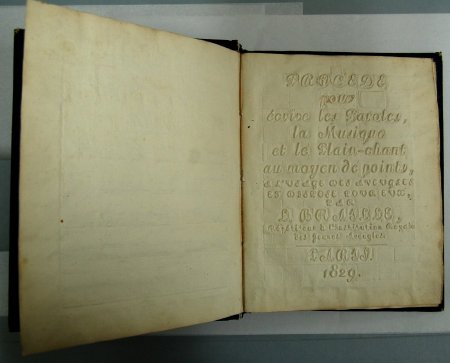 PROCÉDÉ
pour
écrire les Paroles,
la Musique
et le Plain-chant
au moyen de points,
A L'USAGE DES AVEUGLES
ET DISPOSÉ POUR EUX,
PAR
L. BRAILLE,
Répétiteur à l'Institution Royale
des Jeunes Aveugles.
PARIS
1829.